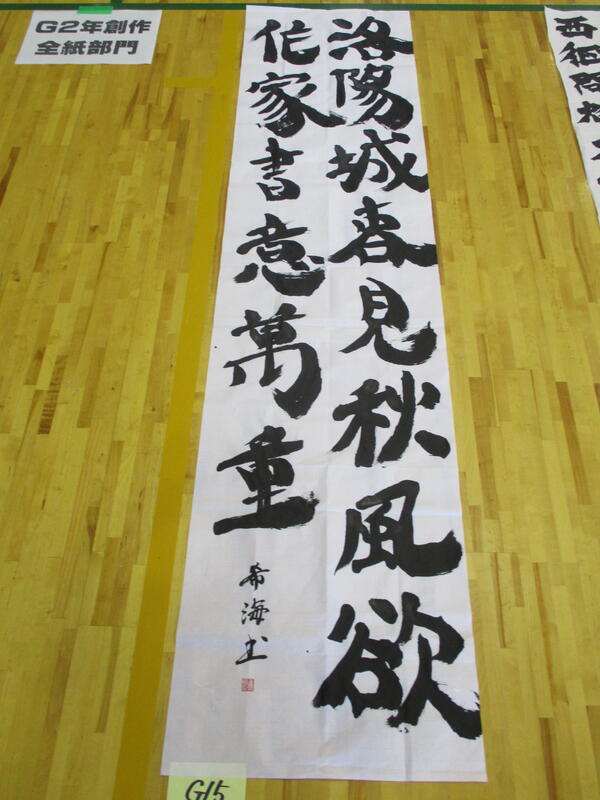 G2年創作
全紙部門
洛陽城裏見秋風欲
作家書意萬重
希海书
G15
西征問